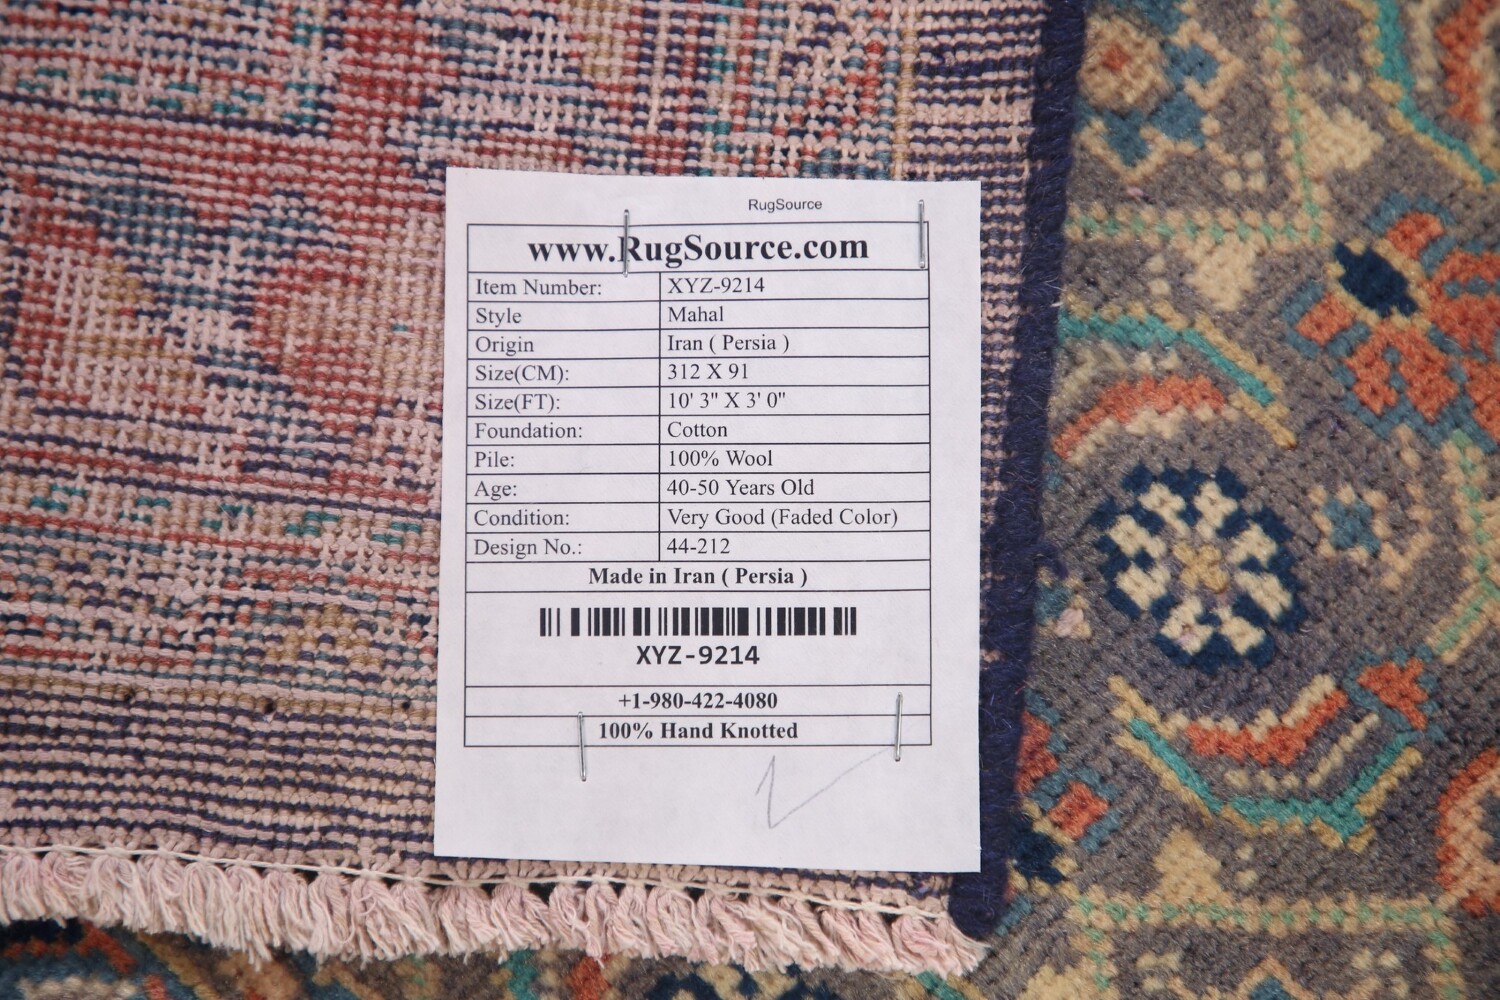 RugSource
www.RugSource.com
Item Number: XYZ-9214
Style Mahal
Origin Iran ( Persia )
Size(CM): 312 X 91
Size(FT): 10' 3" X 3' 0"
Foundation: Cotton
Pile: 100% Wool
Age: 40-50 Years Old
Condition: Very Good (Faded Color)
Design No.: 44-212
Made in Iran ( Persia )
XYZ-9214
+1-980-422-4080
100% Hand Knotted